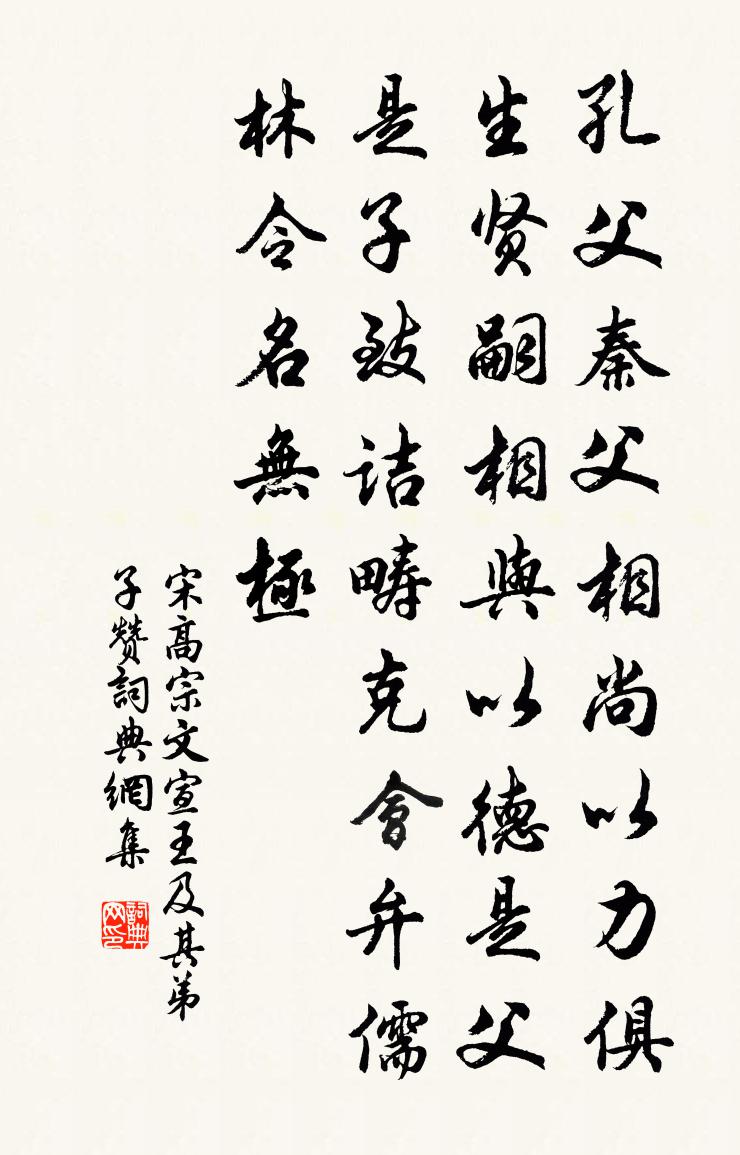 孔父秦父相尚以力俱
生贤嗣相與以德是父
是子致诘畴克會弁儒
林令名無極
宋高宗文宣王及其弟
子赞詞典網集
詞典网印